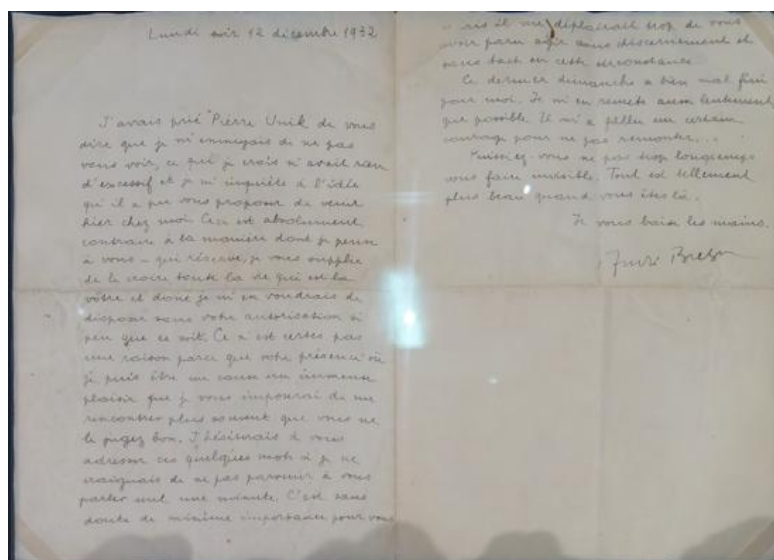 Lundi soir 12 décembre 1932
J'avais prié Pierre Unik de vous
dire que je m'ennuyais de ne pas
vous voir, ce qui je crois n'avait rien
d'excessif et je m'inquiète à l'idée
qu'il a pu vous proposer de venir
hier chez moi. Ceci est absolument
contraire à la manière dont je pense
à vous – qui réserve, je vous supplie
de le croire toute la vie qui est la
vôtre et donc je m'en voudrais de
disposer sans votre autorisation si
peu que ce soit. Ce n'est certes pas
une raison parce que votre présence où
je puis être me cause un immense
plaisir que je vous impose de me
rencontrer plus souvent que vous ne
le jugez bon. J'hésiterais à vous
adresser ces quelques mots si je ne
craignais de ne pas parvenir à vous
parler seul une minute. C'est sans
doute de minime importance pour vous
il me déplairait trop de vous
avoir paru agir sans discernement et
sans tact en cette circonstance.
Ce dernier dimanche a bien mal fini
pour moi. Je m'en remets aussi lentement
que possible. Il m'a fallu un certain
courage pour ne pas remonter...
Puissiez-vous ne pas trop longtemps
vous faire invisible. Tout est tellement
plus beau quand vous êtes là.
Je vous baise les mains.
André Breton